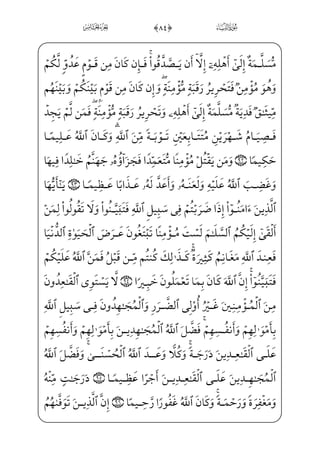 سُورَةُ النِّسَاءِ ﴿٨٤﴾ الجُزْءُ الخَامِسُ
مُّسَلَّمَةٌ إِلَىٰٓ أَهْلِهِۦٓ إِلَّآ أَن يَصَّدَّقُواْۚ فَإِن كَانَ مِن قَوْمٍ عَدُوٍّ لَّكُمْ
وَهُوَ مُؤْمِنٌ فَتَحْرِيرُ رَقَبَةٍ مُّؤْمِنَةٍۖ وَإِن كَانَ مِن قَوْمِۭ بَيْنَكُمْ وَبَيْنَهُم
مِّيثَٰقٌ فَدِيَةٌ مُّسَلَّمَةٌ إِلَىٰٓ أَهْلِهِۦ وَتَحْرِيرُ رَقَبَةٍ مُّؤْمِنَةٍۖ فَمَن لَّمْ يَجِدْ
فَصِيَامُ شَهْرَيْنِ مُتَتَابِعَيْنِ تَوْبَةً مِّنَ ٱللَّهِۗ وَكَانَ ٱللَّهُ عَلِيمًا
حَكِيمًا ﴿٩٢﴾ وَمَن يَقْتُلْ مُؤْمِنًا مُّتَعَمِّدًا فَجَزَآؤُهُۥ جَهَنَّمُ خَٰلِدًا فِيهَا
وَغَضِبَ ٱللَّهُ عَلَيْهِ وَلَعَنَهُۥ وَأَعَدَّ لَهُۥ عَذَابًا عَظِيمًا ﴿٩٣﴾ يَٰٓأَيُّهَا
ٱلَّذِينَ ءَامَنُوٓاْ إِذَا ضَرَبْتُمْ فِي سَبِيلِ ٱللَّهِ فَتَبَيَّنُواْ وَلَا تَقُولُواْ لِمَنْ
أَلْقَىٰٓ إِلَيْكُمُ ٱلسَّلَٰمَ لَسْتَ مُؤْمِنًا تَبْتَغُونَ عَرَضَ ٱلْحَيَوٰةِ ٱلدُّنْيَا
فَعِندَ ٱللَّهِ مَغَانِمُ كَثِيرَةٌۚ كَذَٰلِكَ كُنتُم مِّن قَبْلُ فَمَنَّ ٱللَّهُ عَلَيْكُمْ
فَتَبَيَّنُوٓاْۚ إِنَّ ٱللَّهَ كَانَ بِمَا تَعْمَلُونَ خَبِيرًا ﴿٩٤﴾ لَّا يَسْتَوِي ٱلْقَٰعِدُونَ
مِنَ ٱلْمُؤْمِنِينَ غَيْرُ أُوْلِي ٱلضَّرَرِ وَٱلْمُجَٰهِدُونَ فِي سَبِيلِ ٱللَّهِ
بِأَمْوَٰلِهِمْ وَأَنفُسِهِمْۚ فَضَّلَ ٱللَّهُ ٱلْمُجَٰهِدِينَ بِأَمْوَٰلِهِمْ وَأَنفُسِهِمْ
عَلَى ٱلْقَٰعِدِينَ دَرَجَةًۚ وَكُلًّا وَعَدَ ٱللَّهُ ٱلْحُسْنَىٰۚ وَفَضَّلَ ٱللَّهُ
ٱلْمُجَٰهِدِينَ عَلَى ٱلْقَٰعِدِينَ أَجْرًا عَظِيمًا ﴿٩٥﴾ دَرَجَٰتٍ مِّنْهُ
وَمَغْفِرَةً وَرَحْمَةًۚ وَكَانَ ٱللَّهُ غَفُورًا رَّحِيمًا ﴿٩٦﴾ إِنَّ ٱلَّذِينَ تَوَفَّىٰهُمُ